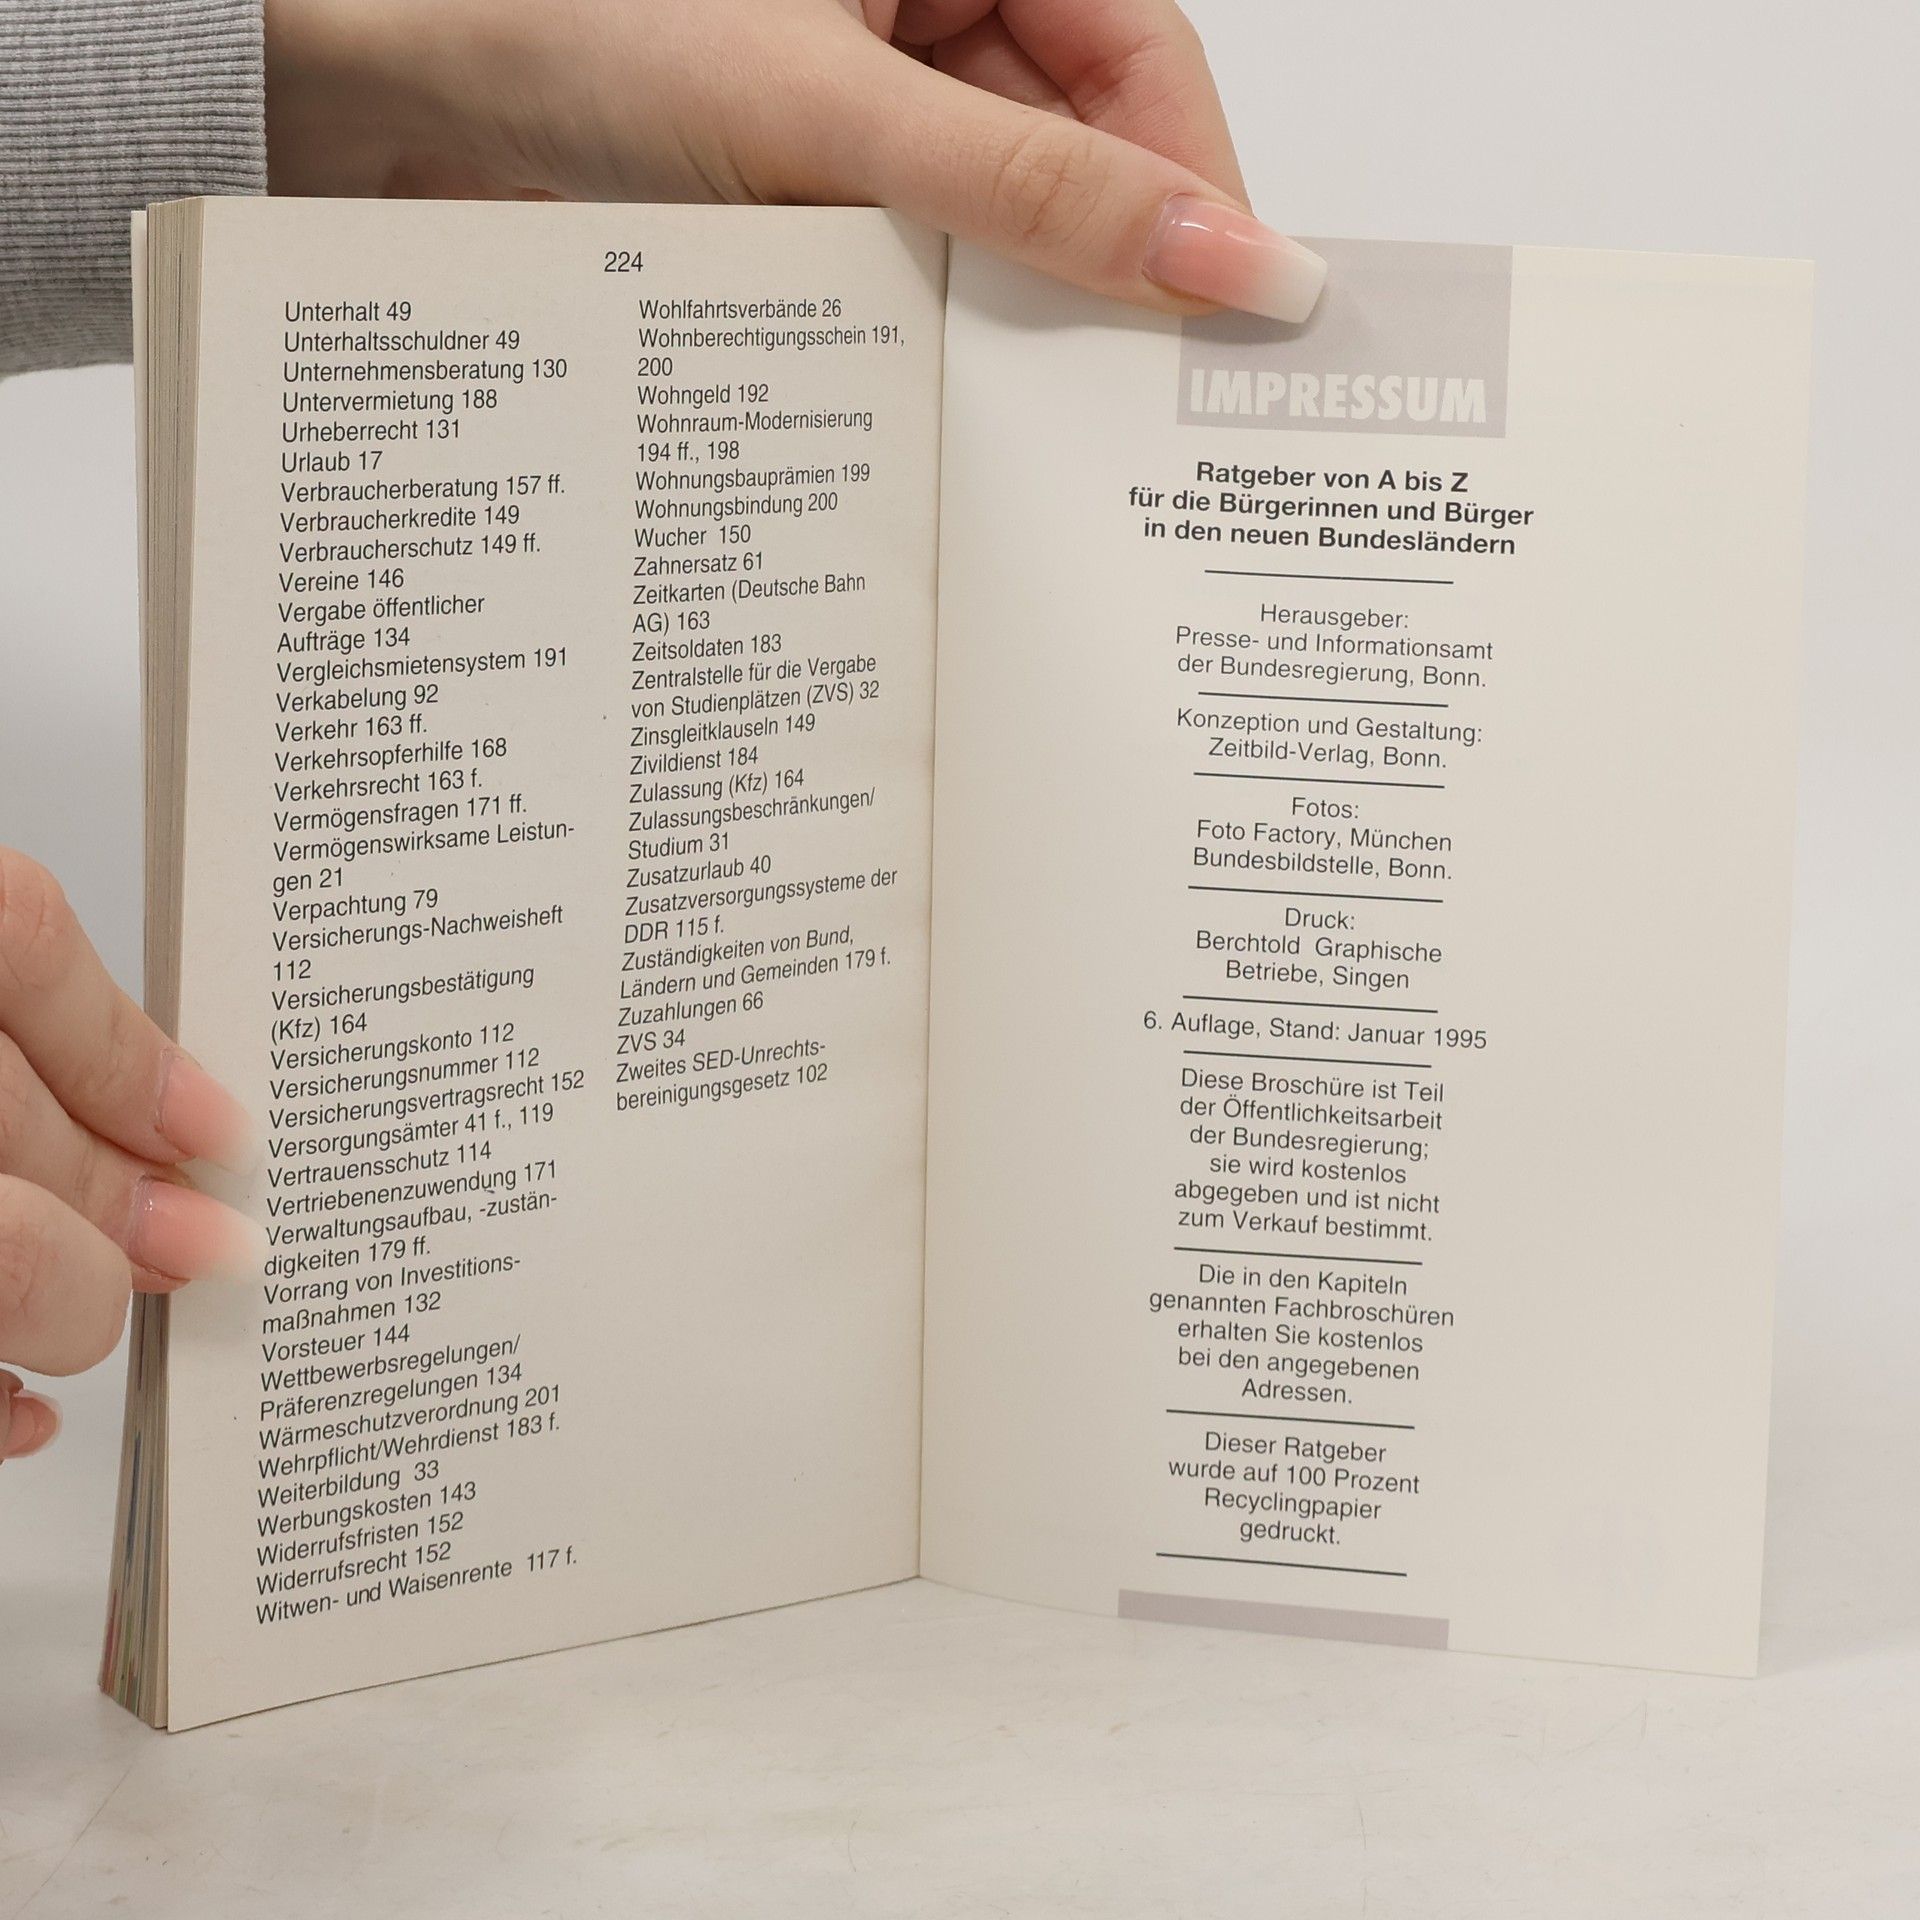 224
Unterhalt 49
Unterhaltsschuldner 49
Unternehmensberatung 130
Untervermietung 188
Urheberrecht 131
Urlaub 17
Verbraucherberatung 157 ff.
Verbraucherkredite 149
Verbraucherschutz 149 ff.
Vereine 146
Vergabe öffentlicher
Aufträge 134
Vergleichsmietensystem 191
Verkabelung 92
Verkehr 163 ff.
Verkehrsopferhilfe 168
Verkehrsrecht 163 f.
Vermögensfragen 171 ff.
Vermögenswirksame Leistun-
gen 21
Verpachtung 79
Versicherungs-Nachweisheft
112
Versicherungsbestätigung
(Kfz) 164
Versicherungskonto 112
Versicherungsnummer 112
Versicherungsvertragsrecht 152
Versorgungsämter 41 f., 119
Vertrauensschutz 114
Vertriebenenzuwendung 171
Verwaltungsaufbau, -zustän-
digkeiten 179 ff.
Vorrang von Investitions-
maßnahmen 132
Vorsteuer 144
Wettbewerbsregelungen/
Präferenzregelungen 134
Wärmeschutzverordnung 201
Wehrpflicht/Wehrdienst 183 f.
Weiterbildung 33
Werbungskosten 143
Widerrufsfristen 152
Widerrufsrecht 152
Witwen- und Waisenrente 117 f.
Wohlfahrtsverbände 26
Wohnberechtigungsschein 191,
200
Wohngeld 192
Wohnraum-Modernisierung
194 ff., 198
Wohnungsbauprämien 199
Wohnungsbindung 200
Wucher 150
Zahnersatz 61
Zeitkarten (Deutsche Bahn
AG) 163
Zeitsoldaten 183
Zentralstelle für die Vergabe
von Studienplätzen (ZVS) 32
Zinsgleitklauseln 149
Zivildienst 184
Zulassung (Kfz) 164
Zulassungsbeschränkungen/
Studium 31
Zusatzurlaub 40
Zusatzversorgungssysteme der
DDR 115 f.
Zuständigkeiten von Bund,
Ländern und Gemeinden 179 f.
Zuzahlungen 66
ZVS 34
Zweites SED-Unrechts-
bereinigungsgesetz 102
IMPRESSUM
Ratgeber von A bis Z
für die Bürgerinnen und Bürger
in den neuen Bundesländern
Herausgeber:
Presse- und Informationsamt
der Bundesregierung, Bonn.
Konzeption und Gestaltung:
Zeitbild-Verlag, Bonn.
Fotos:
Foto Factory, München
Bundesbildstelle, Bonn.
Druck:
Berchtold Graphische
Betriebe, Singen
6. Auflage, Stand: Januar 1995
Diese Broschüre ist Teil
der Öffentlichkeitsarbeit
der Bundesregierung;
sie wird kostenlos
abgegeben und ist nicht
zum Verkauf bestimmt.
Die in den Kapiteln
genannten Fachbroschüren
erhalten Sie kostenlos
bei den angegebenen
Adressen.
Dieser Ratgeber
wurde auf 100 Prozent
Recyclingpapier
gedruckt.